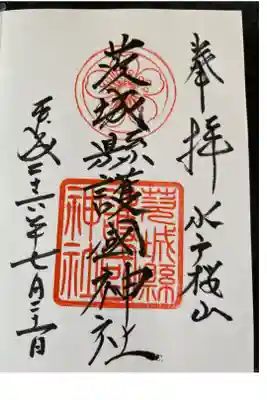 奉拝
水戸桜山
茨城縣護國神社
茨城縣護國神社
平成二十六年七月二十一日